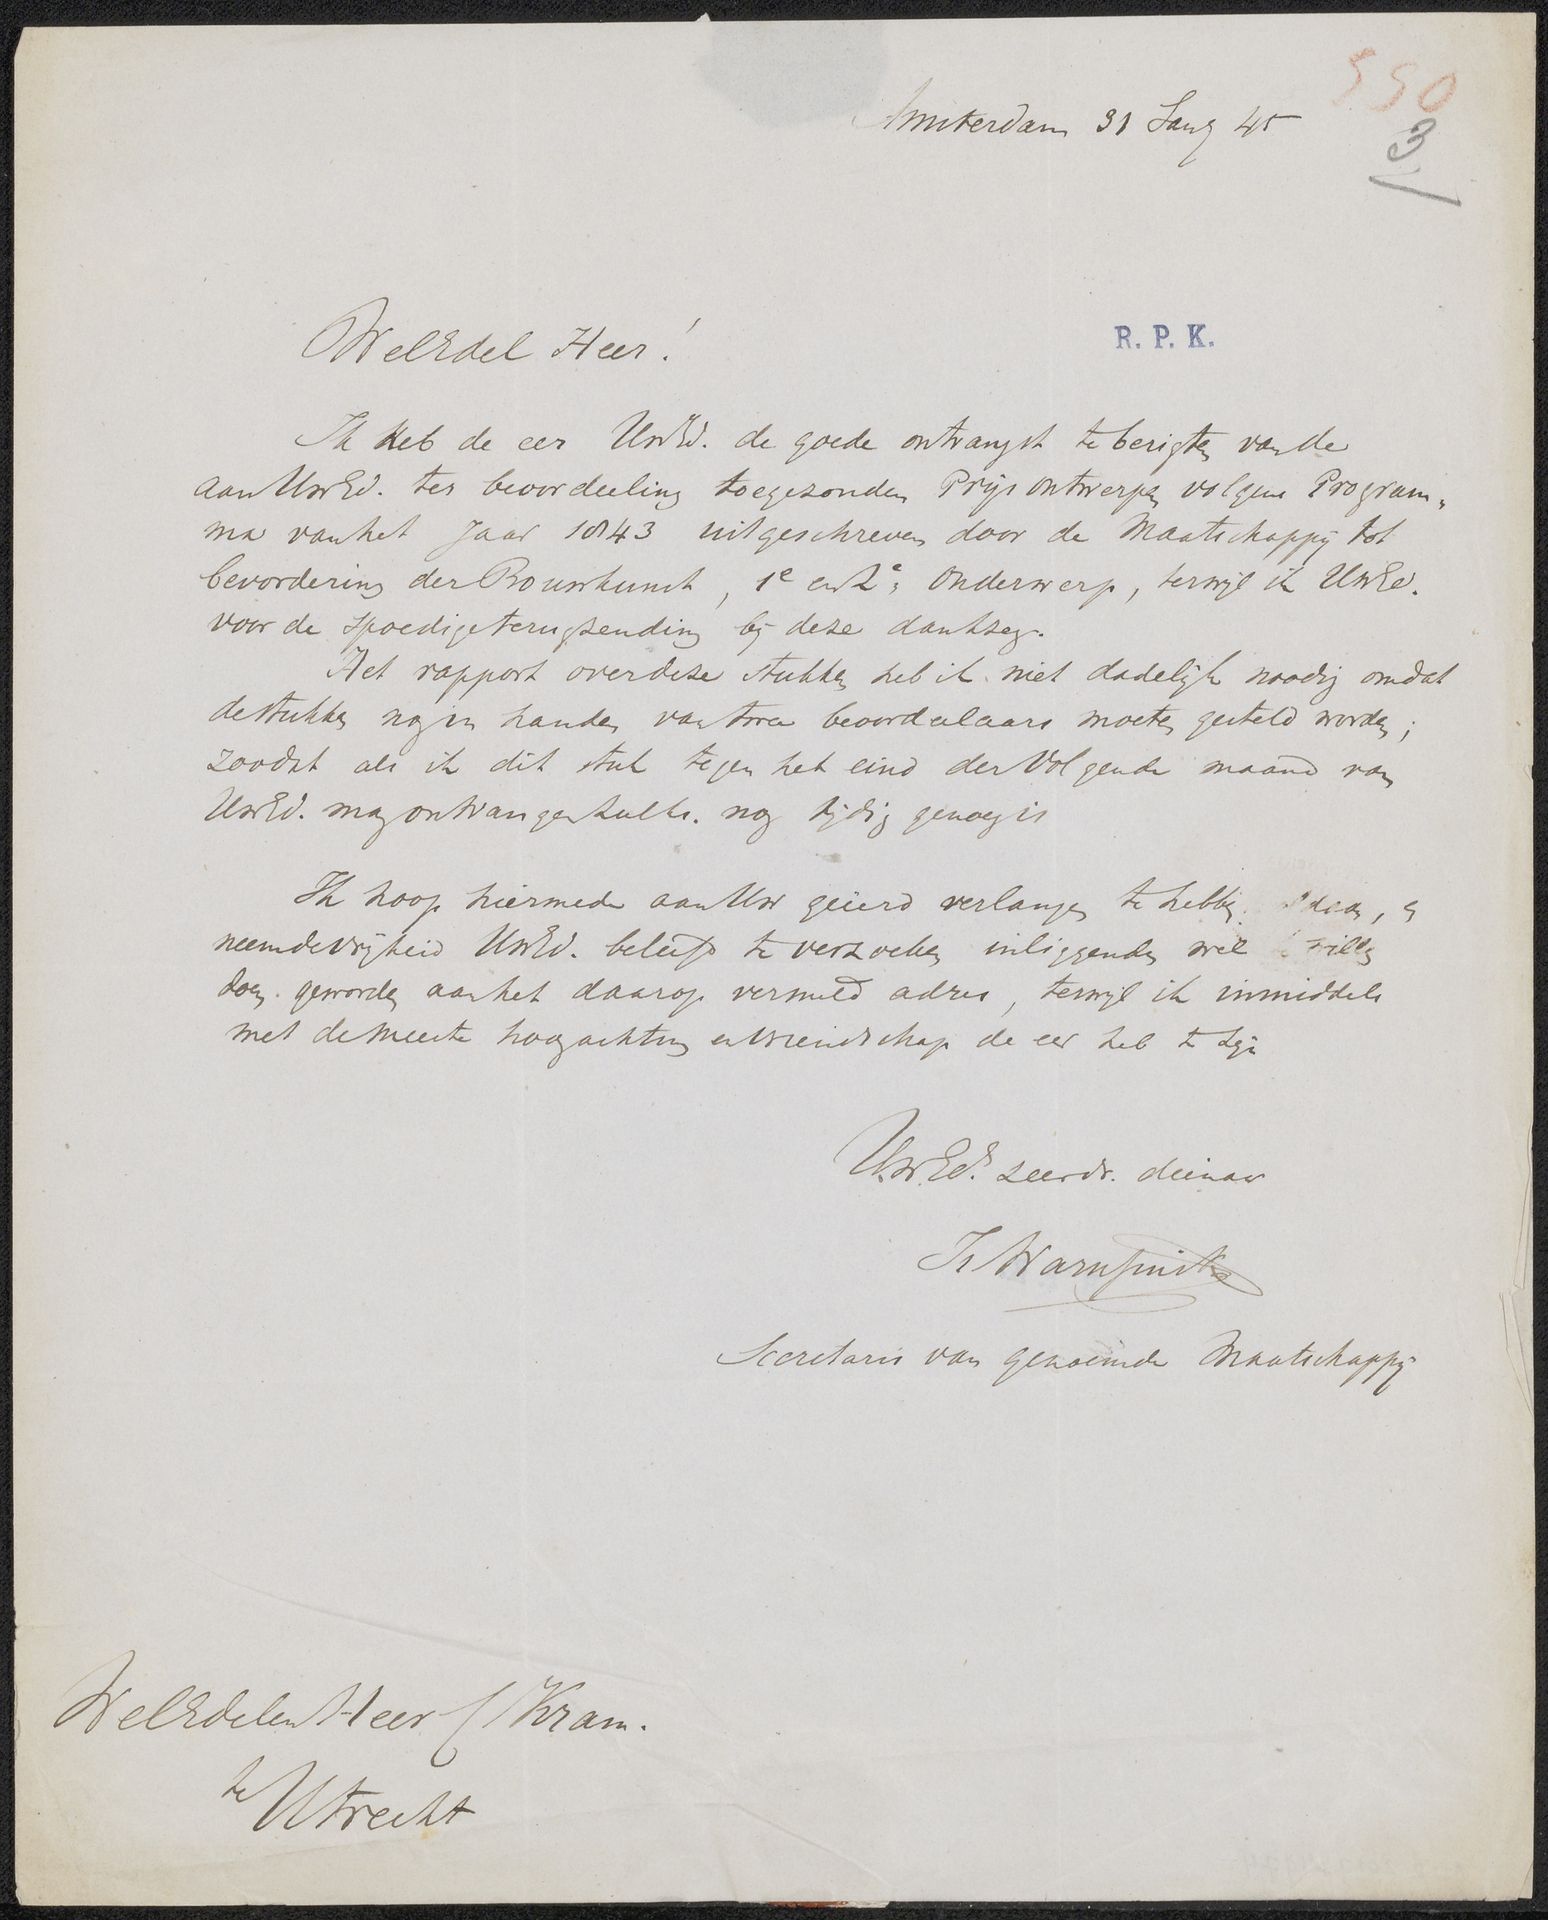 550
Amsterdam 31 Jany 45
3
WelEdel Heer!
R. P. K.
Ik heb de eer UwEd. de goede ontvangst te berigten van de
aan UwEd. ter beoordeeling toegezonden Prijsontwerpen volgens Program„
ma van het Jaar 1843 uitgeschreven door de Maatschappij tot
bevordering der Bouwkunst, 1e en 2e Onderwerp, terwijl ik UwEd.
voor de spoedige terugzending bij deze dankzeg.
Het rapport over deze stukken heb ik niet dadelijk noodig omdat
de stukken nog in handen van twee beoordeelaars moeten gesteld worden;
zoodat als ik dit stuk tegen het eind der volgende maand van
UwEd. mag ontvangen zulks nog tijdig genoeg is
Ik hoop hiermede aan Uw geëerd verlangen te hebben , en
neem de vrijheid UwEd. beleefd te verzoeken inliggenden wel willen
doen geworden aan het daarop vermeld adres, terwijl ik inmiddels
met de meeste hoogachting en vriendschap de eer heb te zijn
UwEd. zeerdr. dienaar
Is Warnsinck
Secretaris van genoemde Maatschappij
WelEdelen Heer C Kram.
te Utrecht